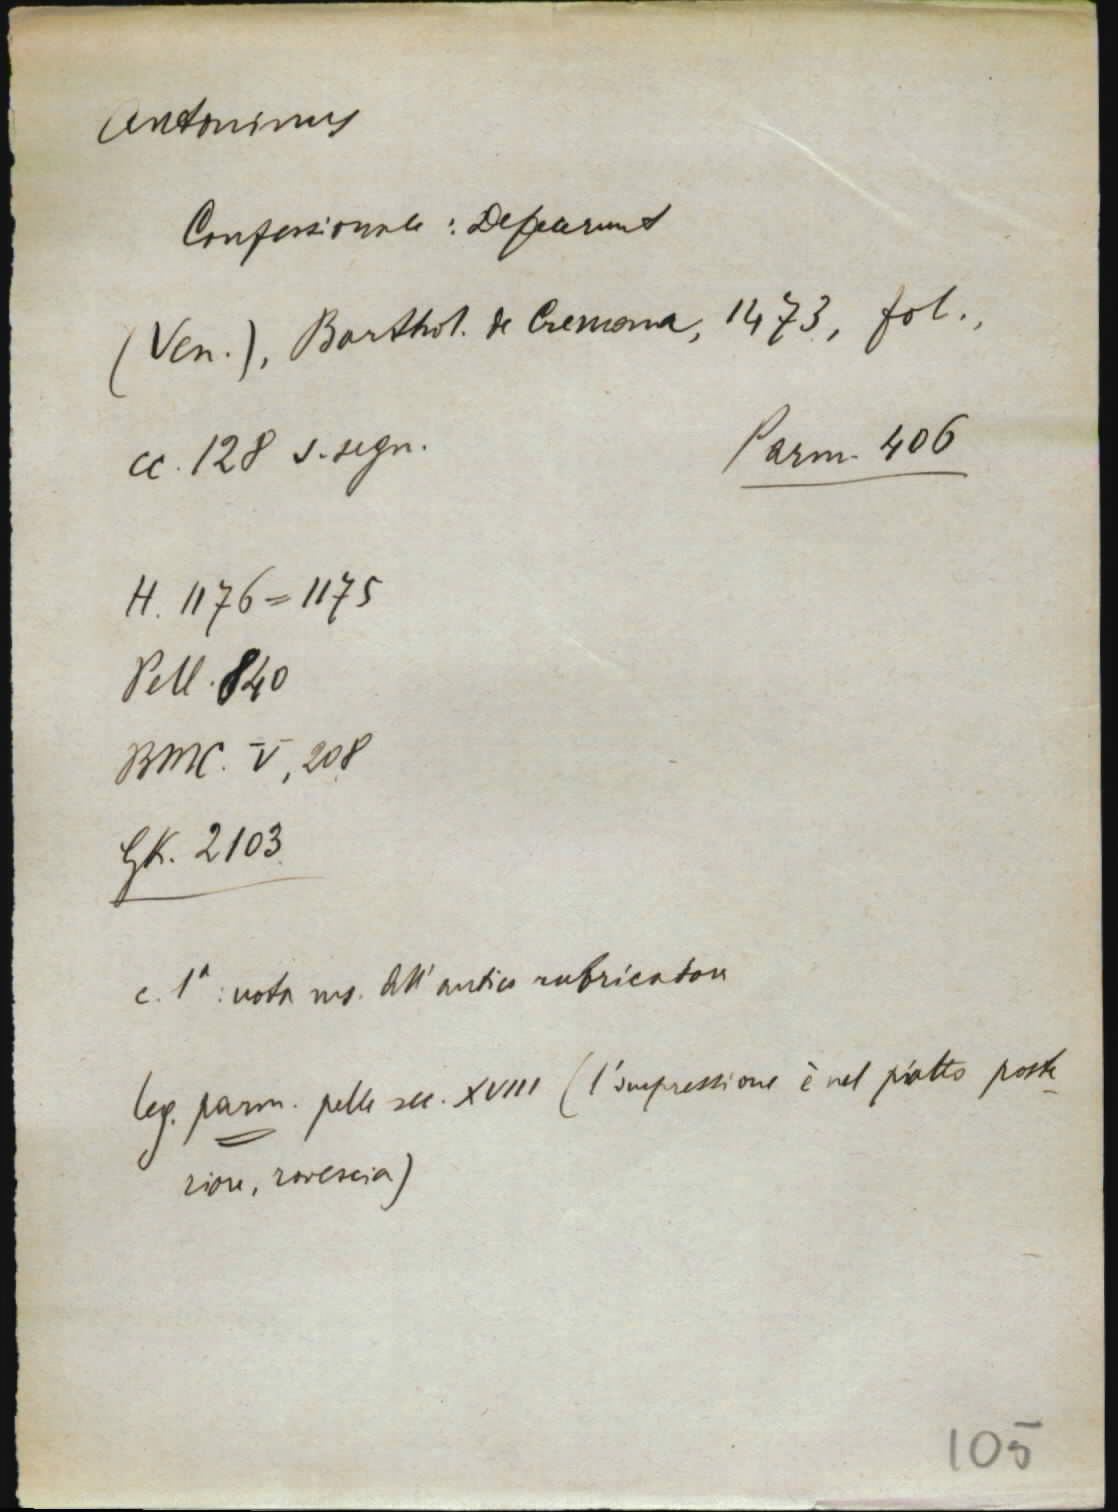 Antoninus
Confessionale : Defecerunt
(Ven.), Barthol. de Cremona, 1473, fol.,
cc. 128 s. segn.
Parm. 406
H. 1176 = 1175
Pell. 840
BMC. V, 208
GK. 2103
c. 1ª : nota ms. dell'antico rubricatore
leg. parm. pelle sec. XVIII (l'impressione è nel piatto poste-
riore, rovescia)
105